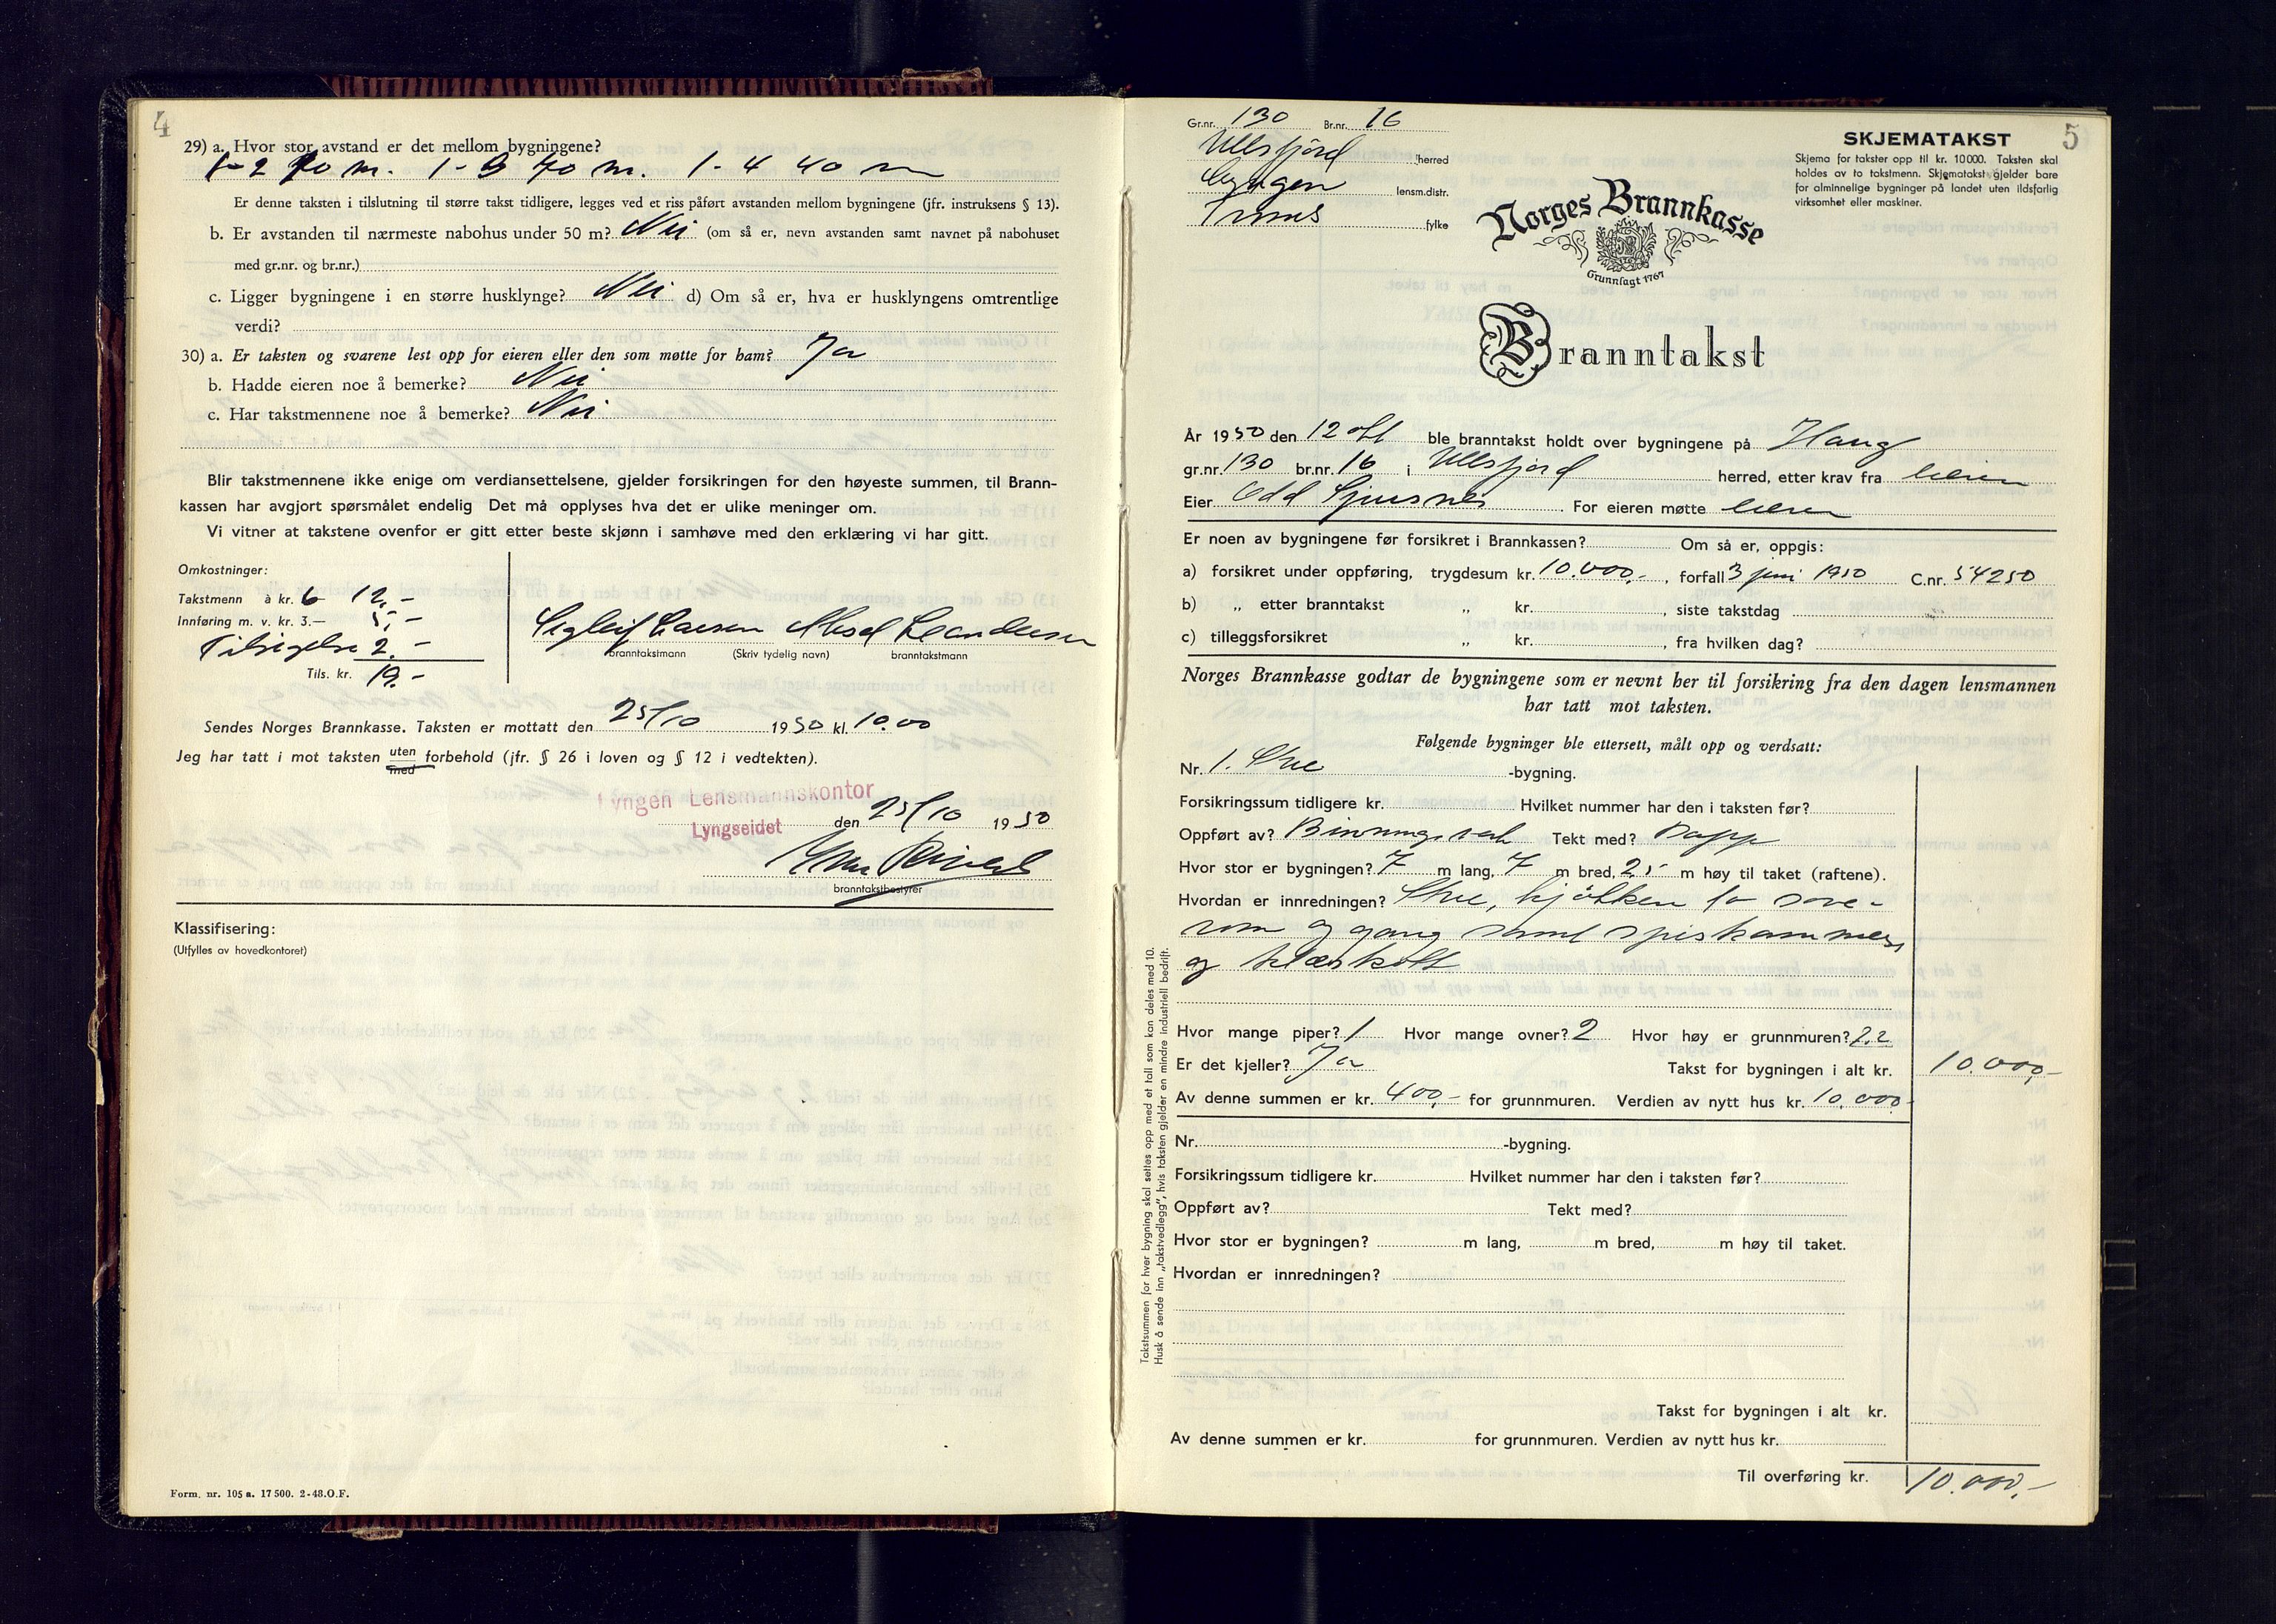 4
29) a. Hvor stor avstand er det mellom bygningene?
1-2 70 m. 1-3 70 m. 1-4 40 m
Er denne taksten i tilslutning til større takst tidligere, legges ved et riss påført avstanden mellom bygningene (jfr. instruksens § 13).
b. Er avstanden til nærmeste nabohus under 50 m? Nei (om så er, nevn avstanden samt navnet på nabohuset
med gr.nr. og br.nr.)
c. Ligger bygningene i en større husklynge? Nei d) Om så er, hva er husklyngens omtrentlige
verdi?
30) a. Er taksten og svarene lest opp for eieren eller den som møtte for ham? Ja
b. Hadde eieren noe å bemerke? Nei
c. Har takstmennene noe å bemerke? Nei
Blir takstmennene ikke enige om verdiansettelsene, gjelder forsikringen for den høyeste summen, til Brann-
kassen har avgjort spørsmålet endelig Det må opplyses hva det er ulike meninger om.
Vi vitner at takstene ovenfor er gitt etter beste skjønn i samhøve med den erklæring vi har gitt.
Omkostninger:
Takstmenn à kr. 6 12.-
Innføring m. v. kr. 3.— 5,-
Tilsigelse 2.-
Tils. kr. 19.-
Sigleif Larsen
branntakstmann (Skriv tydelig navn) branntakstmann
Sendes Norges Brannkasse. Taksten er mottatt den 25/10 1950 kl. 10.00
Jeg har tatt i mot taksten uten forbehold (jfr. § 26 i loven og § 12 i vedtekten).
med
Lyngen Lensmannskontor
Lyngseidet den 25/10 1950
branntakstbestyrer
Klassifisering:
(Utfylles av hovedkontoret)
Form. nr. 105 a. 17 500. 2-48. O.F.
5
Gr.nr. 130 Br.nr. 16
Ullsfjord herred
Lyngen lensm.distr.
Troms fylke
SKJEMATAKST
Skjema for takster opp til kr. 10 000. Taksten skal
holdes av to takstmenn. Skjematakst gjelder bare
for alminnelige bygninger på landet uten ildsfarlig
virksomhet eller maskiner.
Norges Brannkasse
Grunnlagt 1767
Branntakst
År 1950 den 12 okt ble branntakst holdt over bygningene på Haug
gr.nr. 130 br.nr. 16 i Ullsfjord herred, etter krav fra eieren
Eier Odd Sjursnes For eieren møtte eieren
Er noen av bygningene før forsikret i Brannkassen? Om så er, oppgis:
a) forsikret under oppføring, trygdesum kr. 10.000,- , forfall 3 juni 1950 C.nr. 54250
b) „ etter branntakst „ kr. , siste takstdag
c) tilleggsforsikret „ kr. , fra hvilken dag?
Norges Brannkasse godtar de bygningene som er nevnt her til forsikring fra den dagen lensmannen
har tatt mot taksten.
Følgende bygninger ble ettersett, målt opp og verdsatt:
Nr. 1. Stue -bygning.
Forsikringssum tidligere kr. Hvilket nummer har den i taksten før?
Oppført av? Binningsverk Tekt med? Papp
Hvor stor er bygningen? 7 m lang, 7 m bred, 2,5 m høy til taket (raftene).
Hvordan er innredningen? Stue, kjøkken to sove-
rom og gang samt spiskammers
og klæskott
Hvor mange piper? 1 Hvor mange ovner? 2 Hvor høy er grunnmuren? 2.2
Er det kjeller? Ja Takst for bygningen i alt kr. 10.000,-
Av denne summen er kr. 400,- for grunnmuren. Verdien av nytt hus kr. 10.000-
Nr. -bygning.
Forsikringssum tidligere kr. Hvilket nummer har den i taksten før?
Oppført av? Tekt med?
Hvor stor er bygningen? m lang, m bred, m høy til taket.
Hvordan er innredningen?
Takst for bygningen i alt kr.
Av denne summen er kr. for grunnmuren. Verdien av nytt hus kr.
Til overføring kr. 10.000,-
Takstsummen for hver bygning skal settes opp med et tall som kan deles med 10.
Husk å sende inn „takstvedlegg", hvis taksten gjelder en mindre industriell bedrift.